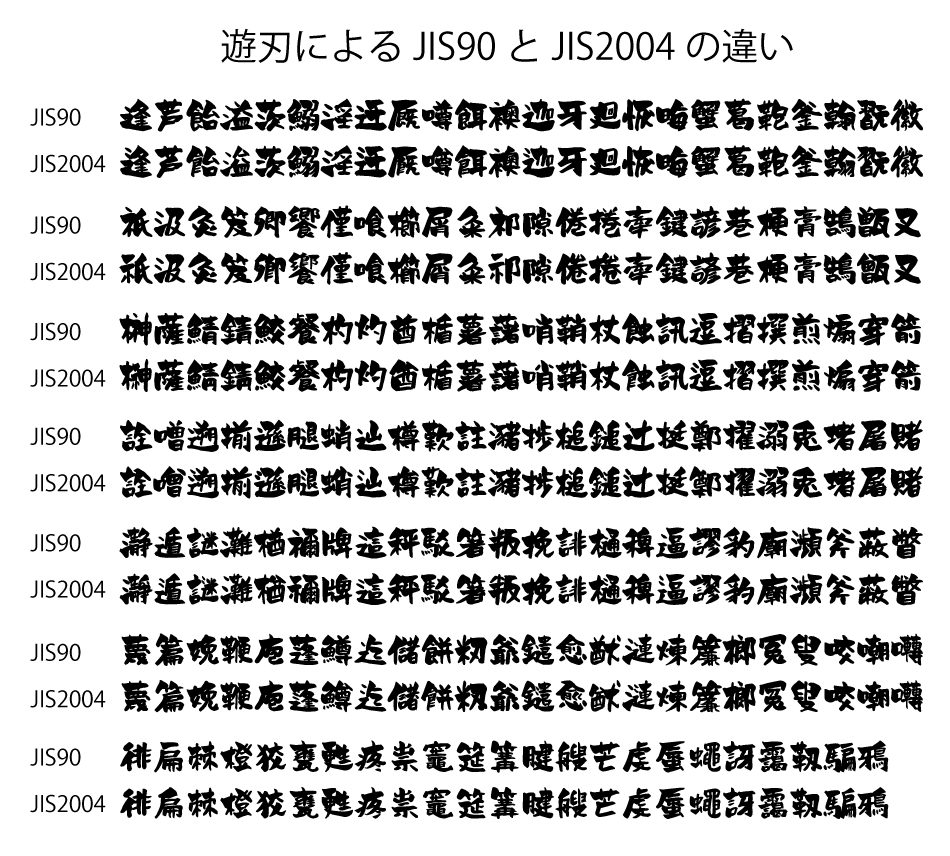 遊刃による JIS90 と JIS2004 の違い
JIS90 逢芦飴溢茨鰯淫迂厩噂餌襖迦牙廻恢晦蟹葛鞄釜翰翫徽
JIS2004 逢芦飴溢茨鰯淫迂厩噂餌襖迦牙廻恢晦蟹葛鞄釜翰翫徽
JIS90 祇汲灸笈卿饗僅喰櫛屑粂祁隙倦捲牽鍵諺巷梗膏鵠甑叉
JIS2004 祇汲灸笈卿饗僅喰櫛屑粂祁隙倦捲牽鍵諺巷梗膏鵠甑叉
JIS90 榊薩鯖錆鮫餐杓灼酋楯薯藷哨鞘杖蝕訊逗摺撰煎煽穿箭
JIS2004 榊薩鯖錆鮫餐杓灼酋楯薯藷哨鞘杖蝕訊逗摺撰煎煽穿箭
JIS90 詮噌遡揃遜腿蛸辿樽歎註瀦捗槌鎚辻挺鄭擢溺兎堵屠賭
JIS2004 詮噌遡揃遜腿蛸辿樽歎註瀦捗槌鎚辻挺鄭擢溺兎堵屠賭
JIS90 瀞遁謎灘楢禰牌這秤駁箸叛挽誹樋稗逼謬豹廟瀕斧蔽瞥
JIS2004 瀞遁謎灘楢禰牌這秤駁箸叛挽誹樋稗逼謬豹廟瀕斧蔽瞥
JIS90 蔑篇娩鞭庖蓬鱒迄儲餅籾爺鑓愈猷漣煉簾榔冤叟咬嘲囀
JIS2004 蔑篇娩鞭庖蓬鱒迄儲餅籾爺鑓愈猷漣煉簾榔冤叟咬嘲囀
JIS90 徘扁棘橙狡甕甦疼祟竈筵篝腱艘芒虔蜃蠅訝靄靱騙鴉
JIS2004 徘扁棘橙狡甕甦疼祟竈筵篝腱艘芒虔蜃蠅訝靄靱騙鴉